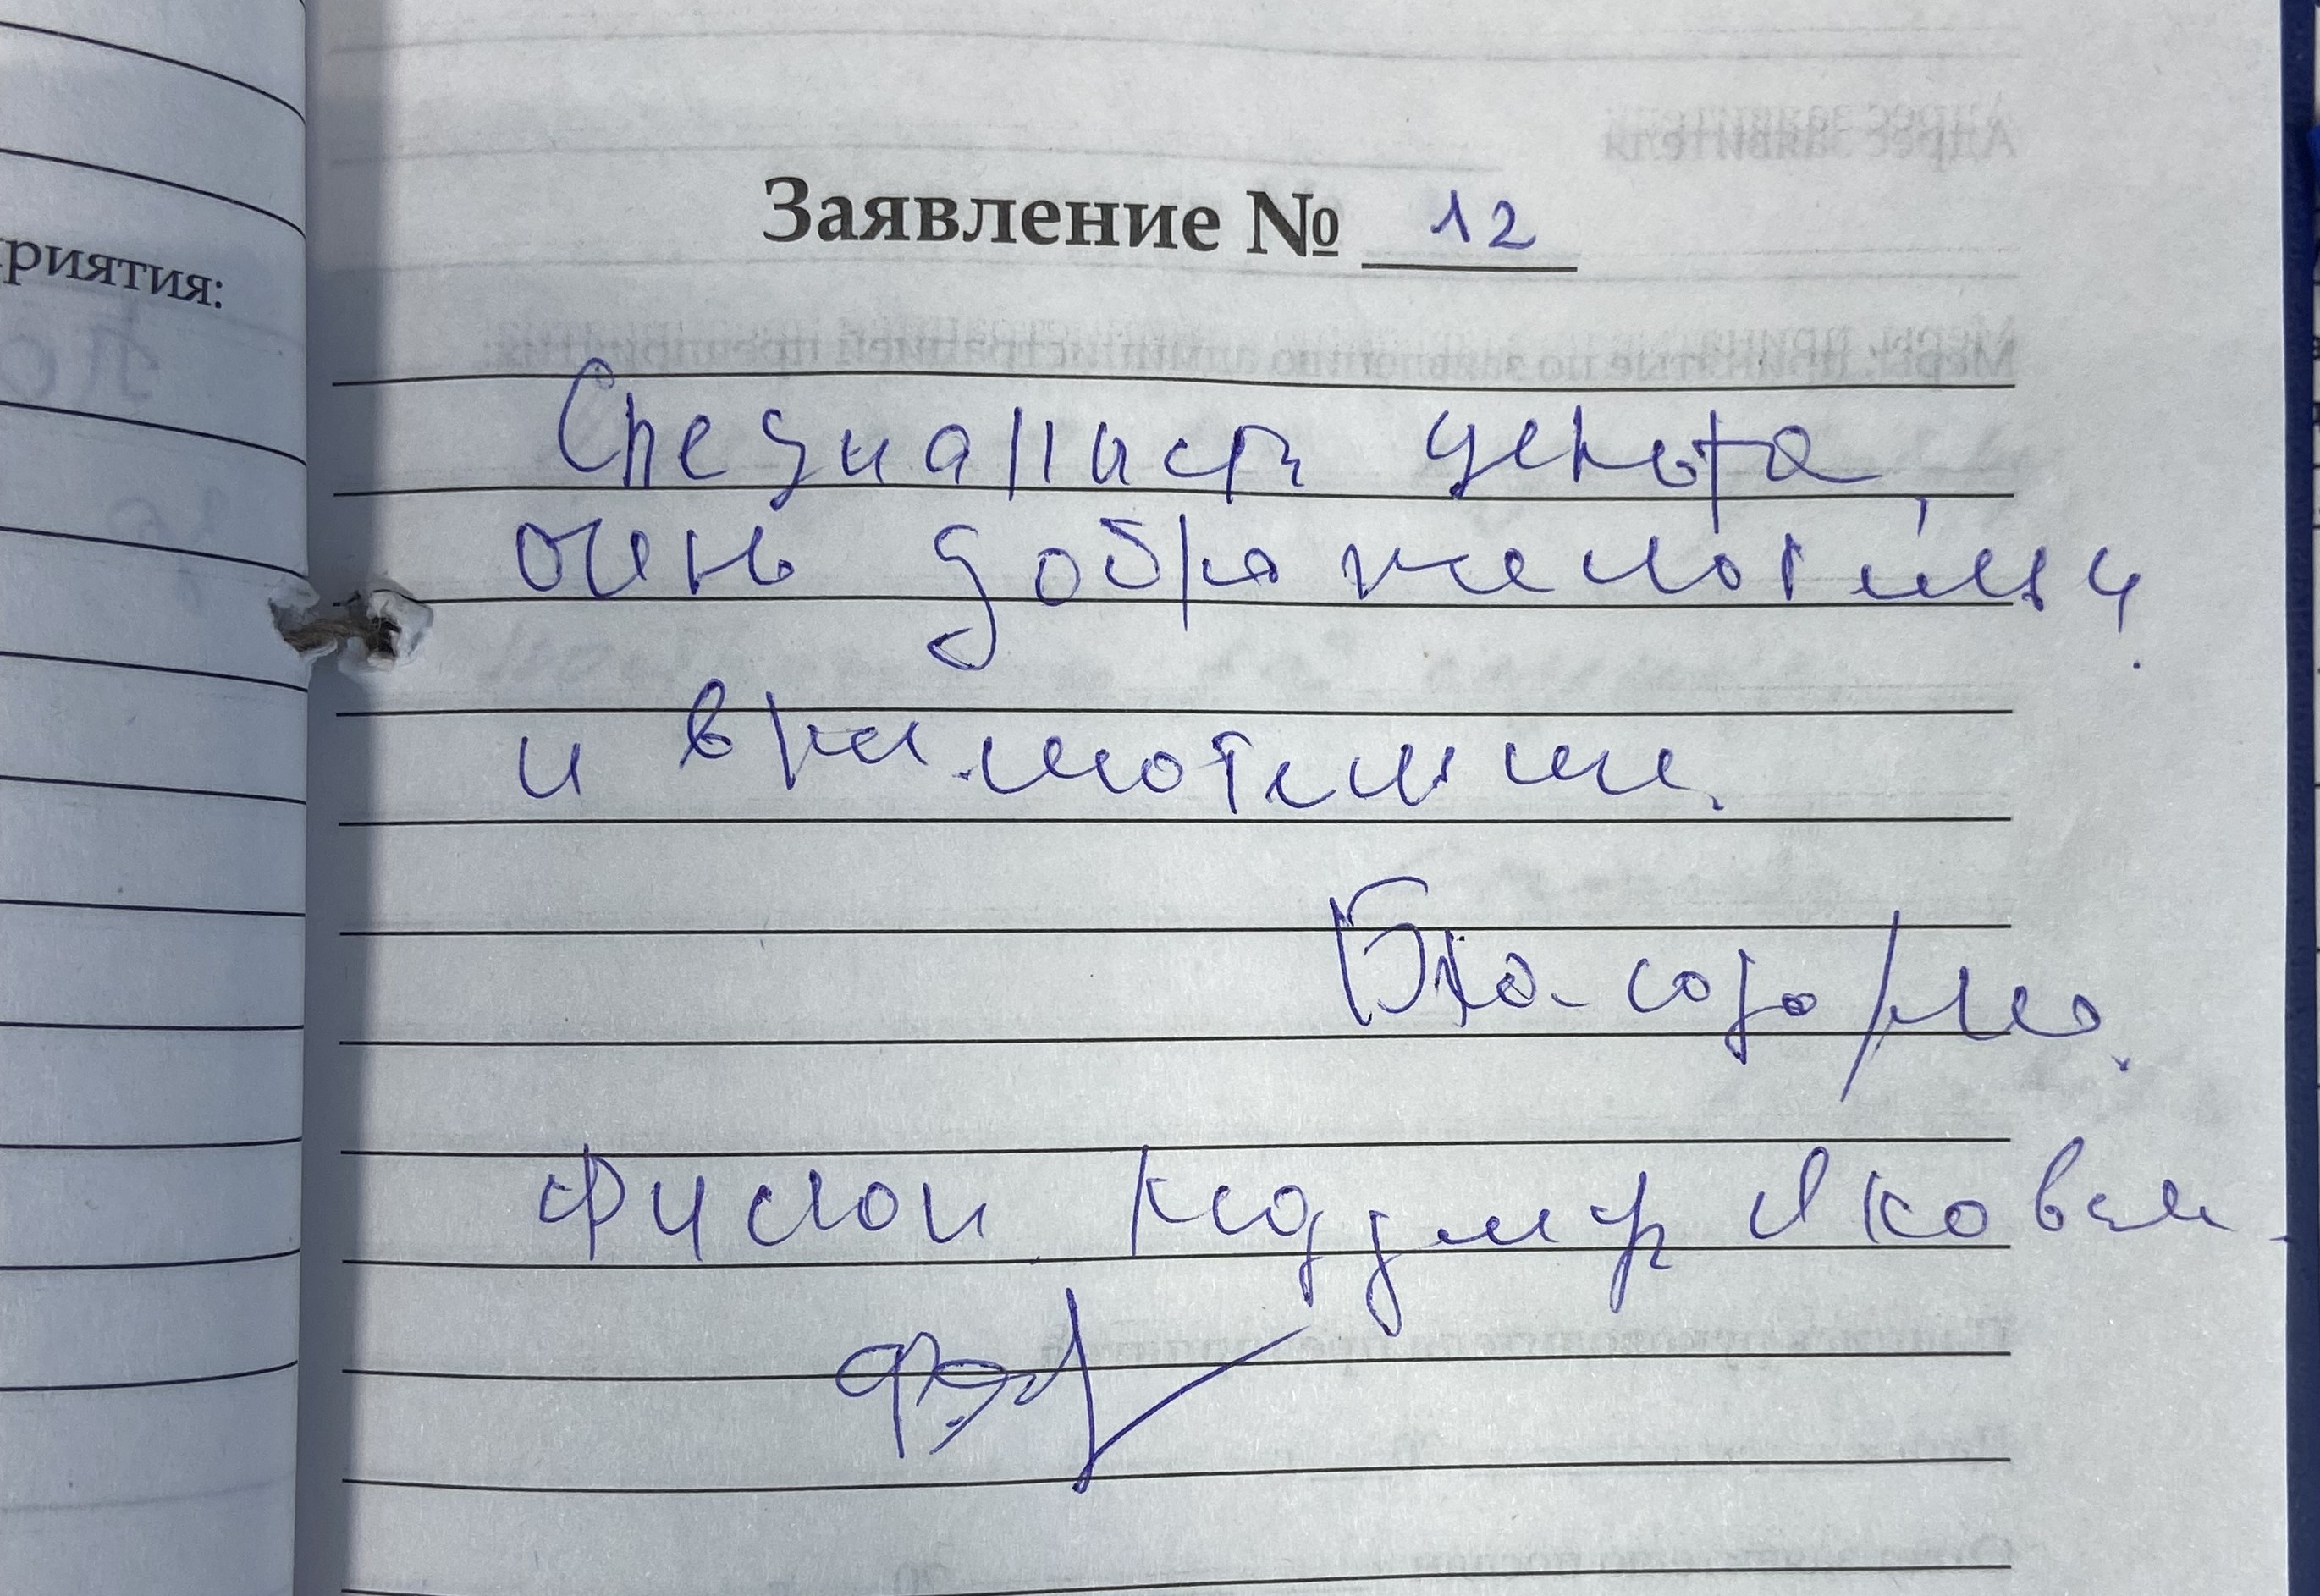 приятия:
Заявление № 12
Специалист центра
очень доброжелательны
и внимательны.
Благодарю.
Яковлевич